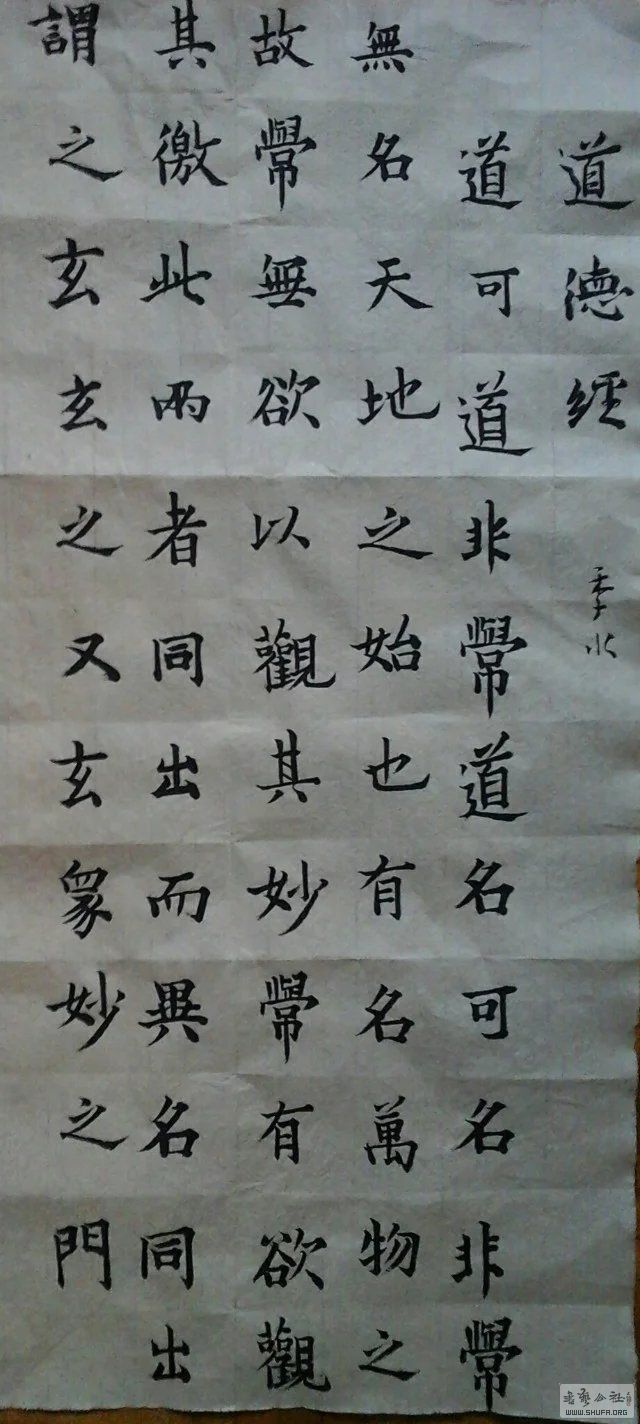 道德經
季水
道可道非常道名可名非常
無名天地之始也有名萬物之
故常無欲以觀其妙常有欲觀
其徼此兩者同出而異名同出
謂之玄玄之又玄眾妙之門
書藝公社
WWW.SHUFA.ORG